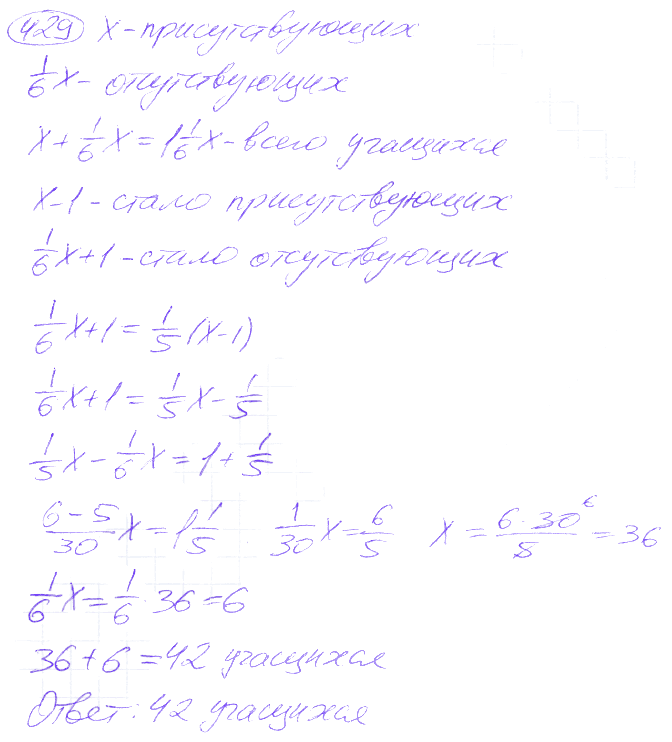 429 x - присутствующих
1/6 x - отсутствующих
x + 1/6 x = 1 1/6 x - всего учащихся
x - 1 - стало присутствующих
1/6 x + 1 - стало отсутствующих
1/6 x + 1 = 1/5 (x - 1)
1/6 x + 1 = 1/5 x - 1/5
1/5 x - 1/6 x = 1 + 1/5
(6 - 5)/30 x = 1 1/5 1/30 x = 6/5 x = (6 · 30⁶)/5 = 36
1/6 x = 1/6 · 36 = 6
36 + 6 = 42 учащихся
Ответ: 42 учащихся